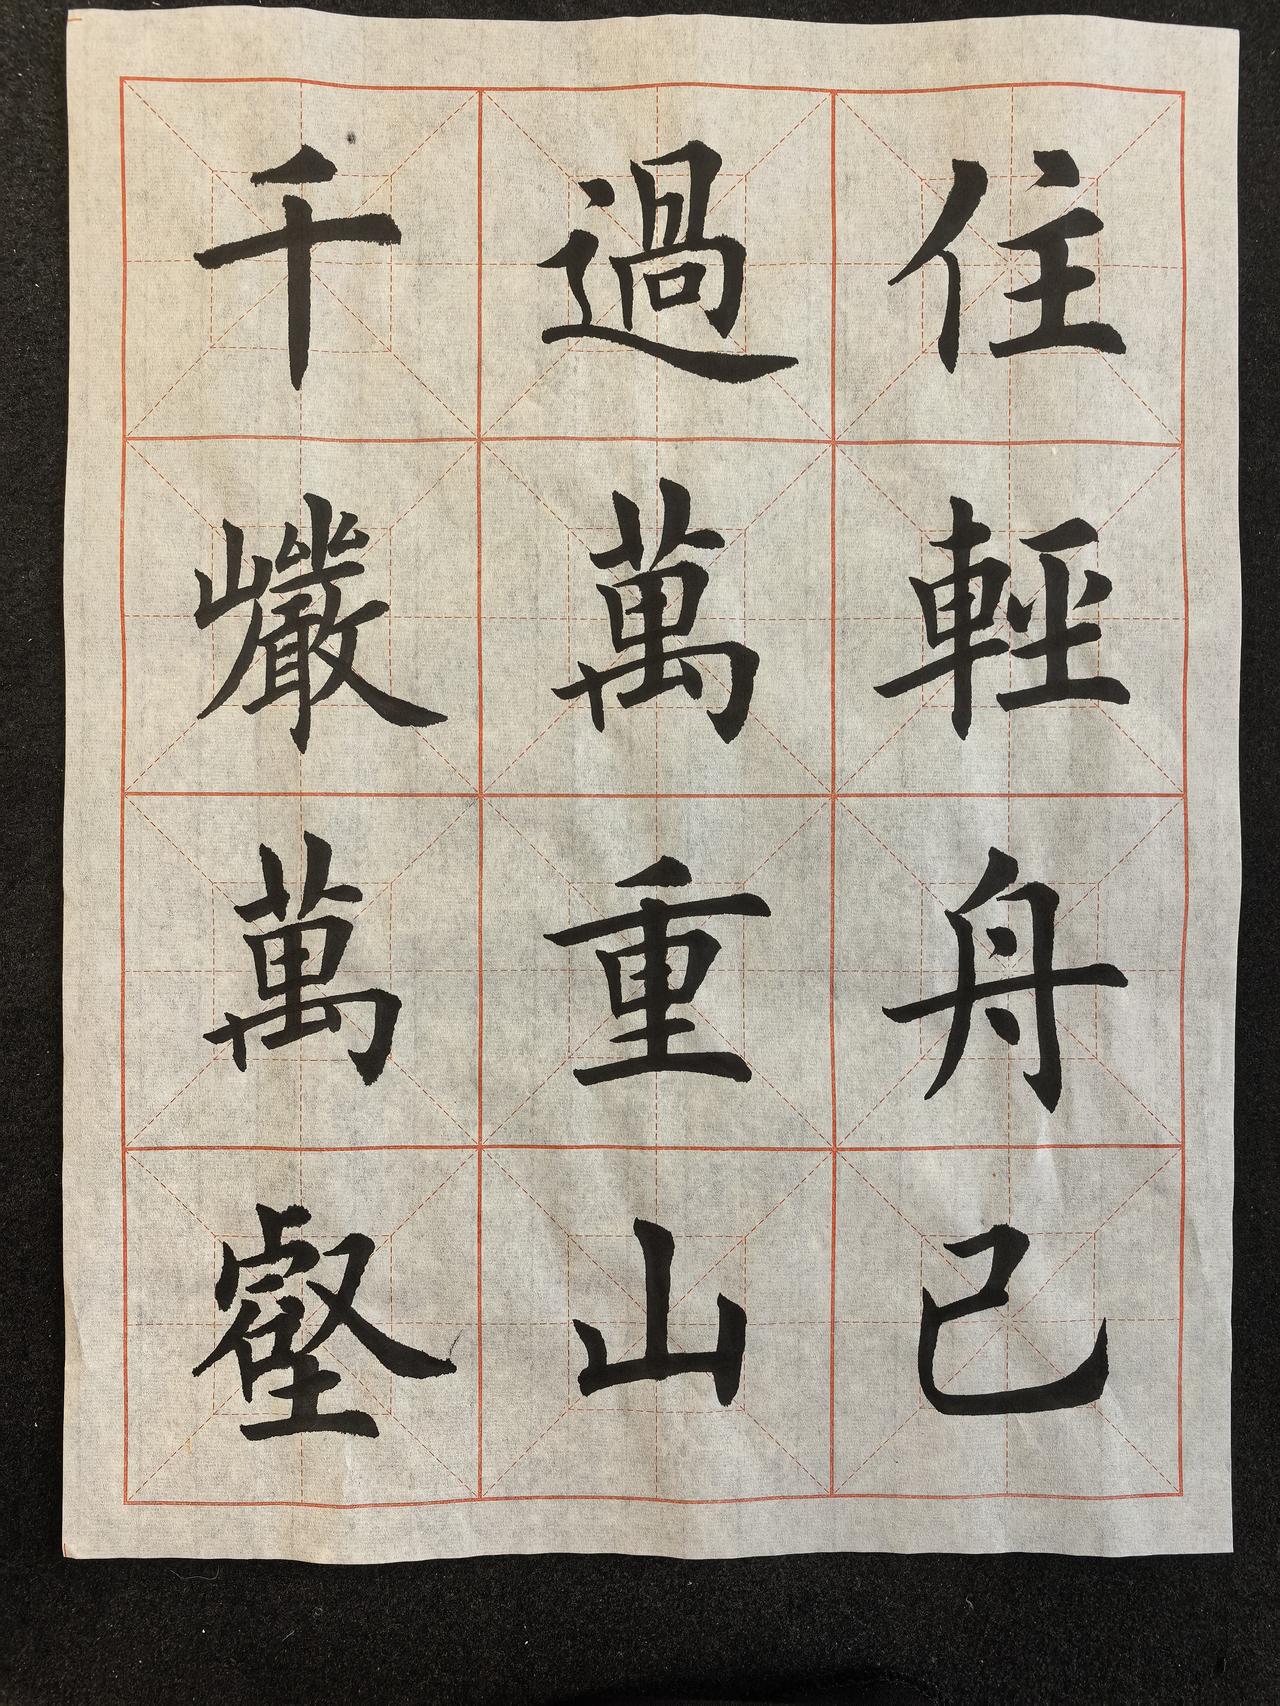 住輕舟已
過萬重山
千巖萬壑